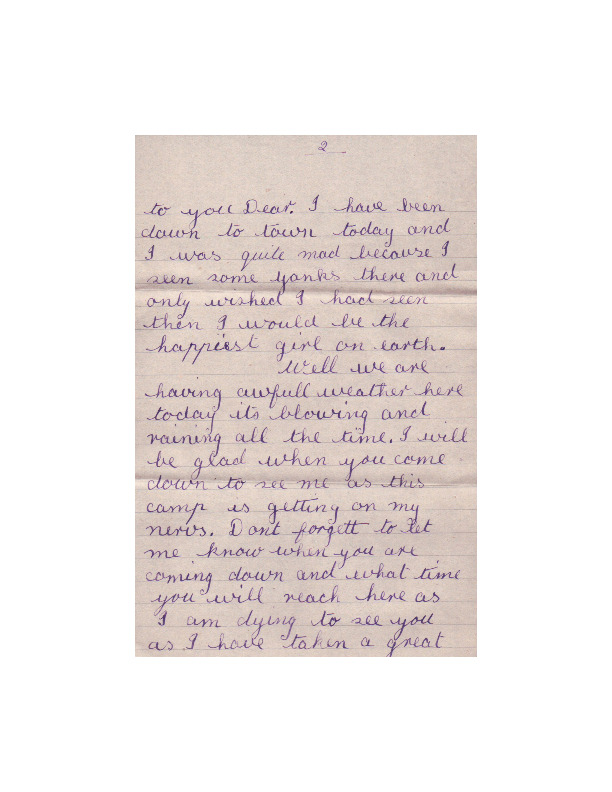 2
to you Dear. I have been
down to town today and
I was quite mad because I
seen some yanks there and
only wished I had seen
then I would be the
happiest girl on earth.
Well we are
having awfull weather here
today its blowing and
raining all the time. I will
be glad when you come
down to see me as this
camp is getting on my
nervs. Dont forgett to let
me know when you are
coming down and what time
you will reach here as
I am dying to see you
as I have taken a great